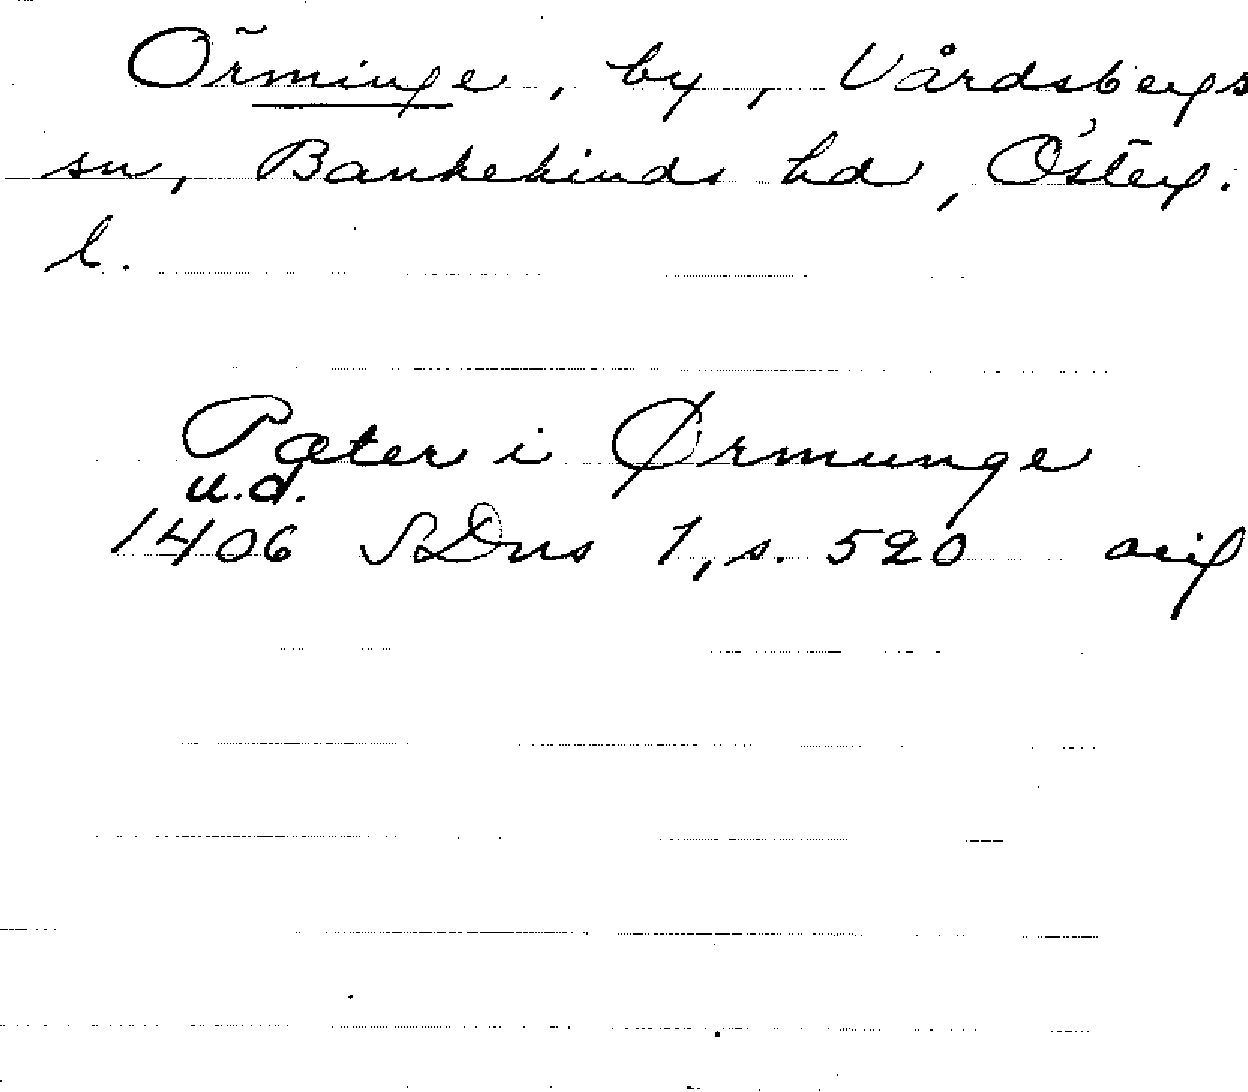 Örminge, by, Vårdsbergs
sn, Bankekinds hd, Österg.
l.
Pæter i Ørmunge
u.d.
1406 SDns 1, s. 520 orig